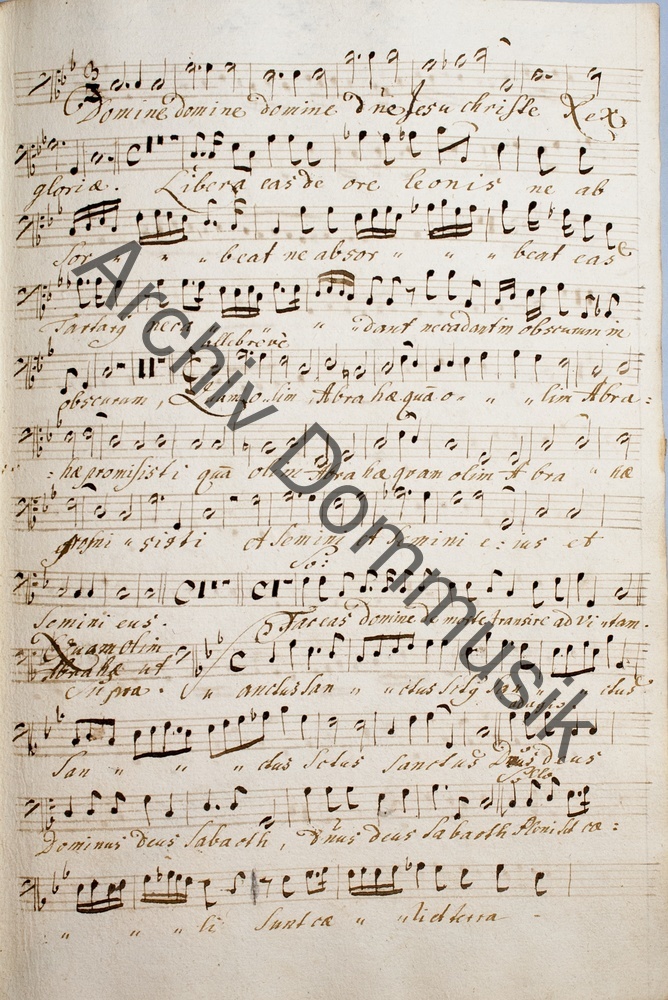 Domine domine domine dne Jesu christe Rex
gloriæ. Libera eas de ore leonis ne ab
sor " " " beat ne absor " " " beat eas
Tartarg neca " " dant necadantin obscurum in
allebreve
obscurum, Quam o " lim Abrahæ quā o " " " lim Abra:
:hæ promisisti quā olim Abrahæ quam olim Abra " hæ
promi " sisti et Semini et Semini e: ius et
So:
Semini eius. Faceas domine de morte transire ad Vi " tam.
Quam olim
Abrahæ ut
supra. S " anctus San " " ctus San " " ctus
adagio
San " " " ctus Sctus Sanctus Dnus deus
Solo
Dominus deus Sabaoth, dnus deus Sabaoth Pleni St cæ:
" " " li Sunt cæ " " li et terra -
Archiv Dommusik